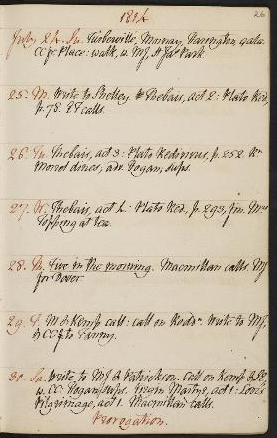 1814
26
July 24. Su. Turberville, Murray, Farrington, qula.
CC & Place: walk, w. MJ, St Jas Park.
25. M. Write to Shelley. Thebais, act 2: Plato Red,
p. 78. calls.
26. Tu. Thebais, act 3: Plato Redivivus, p. 252.
dines, adv. Hogan, sups.
27. W. Thebais, act 4: Plato Red, p. 293, fin. Mrs
Topping at tea.
28. Th. Five in the morning. Macmillan calls. MJ
for Dover.
29. F. M & Kemp call: call on Write to MJ,
& CC to Fanny.
30. Sa. Write to MJ & Patrickson. Call on Kemp
w. CC. Hogan sups. Virgin Martyr, act 1: Love's
Pilgrimage, act 1. Macmillan calls.
Prorogation.